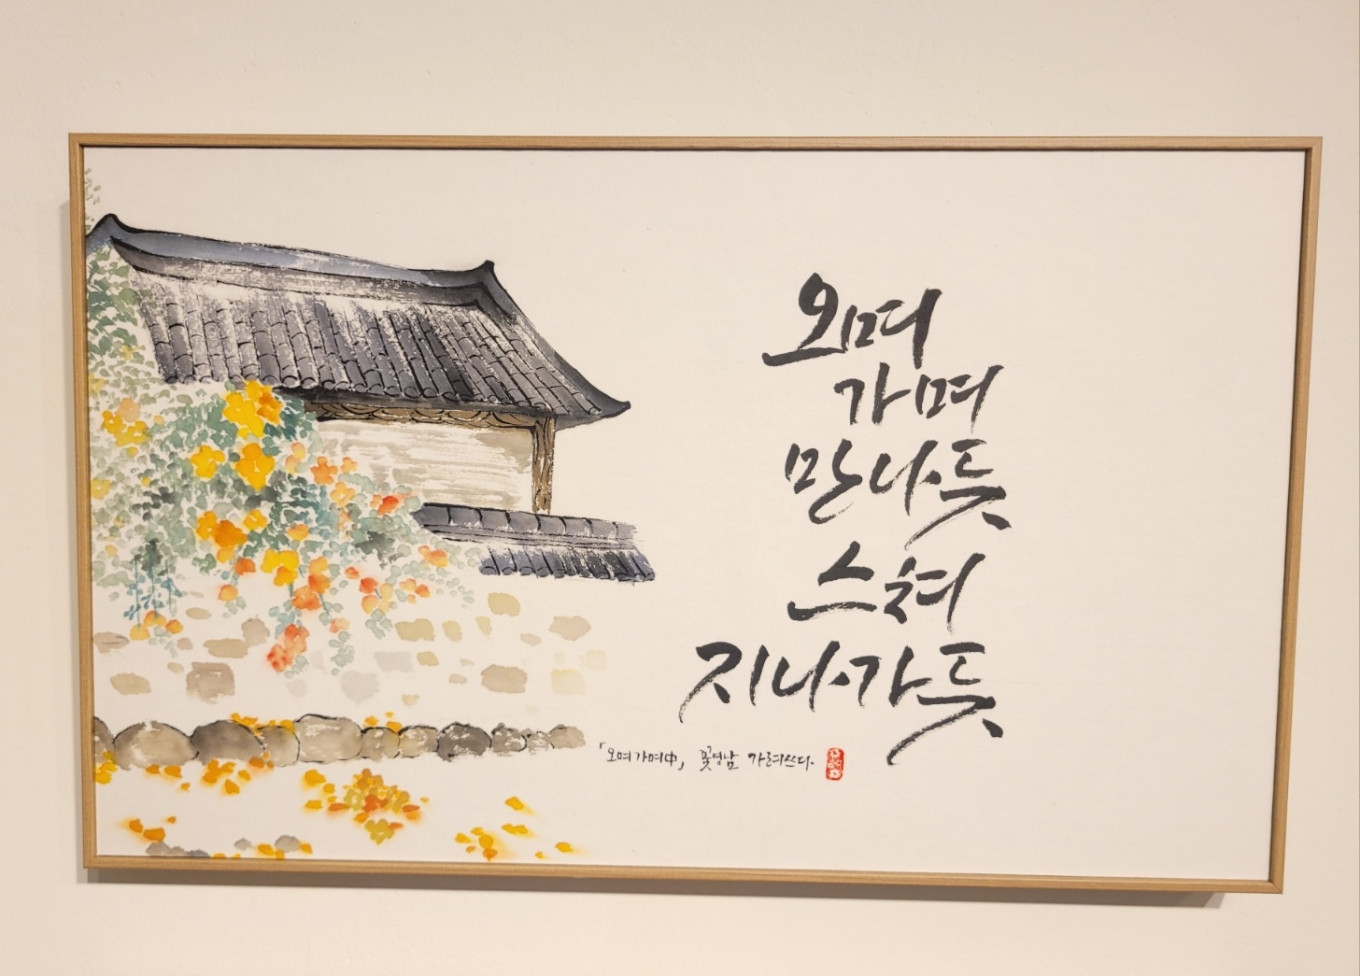 오며
가며
만나듯
스쳐
지나가듯
「오며가며中」 꽃영남 가려쓰다.